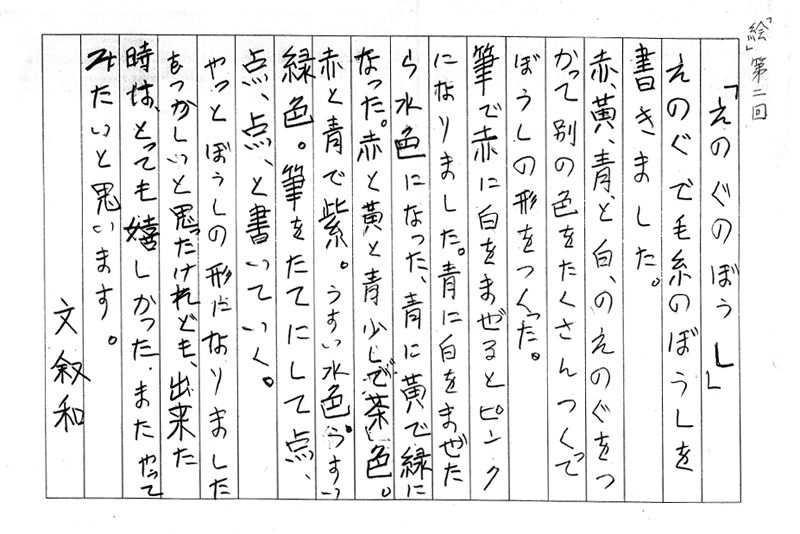 「絵」第二回
「えのぐのぼうし」
えのぐで毛糸のぼうしを
書きました。
赤、黄、青、と白、のえのぐをつ
かって別の色をたくさんつくって
ぼうしの形をつくった。
筆で赤に白をまぜるとピンク
になりました。青に白をまぜた
ら水色になった、青に黄で緑に
なった。赤と黄と青少しで茶色。
赤と青で紫。うすい水色うすい
緑色。筆をたてにして点、
点、点、と書いていく。
やっとぼうしの形だなりました
もつかしいと思ったけれども、出来た
時は、とっても嬉しかった.またやって
みたいと思います。
文叙和